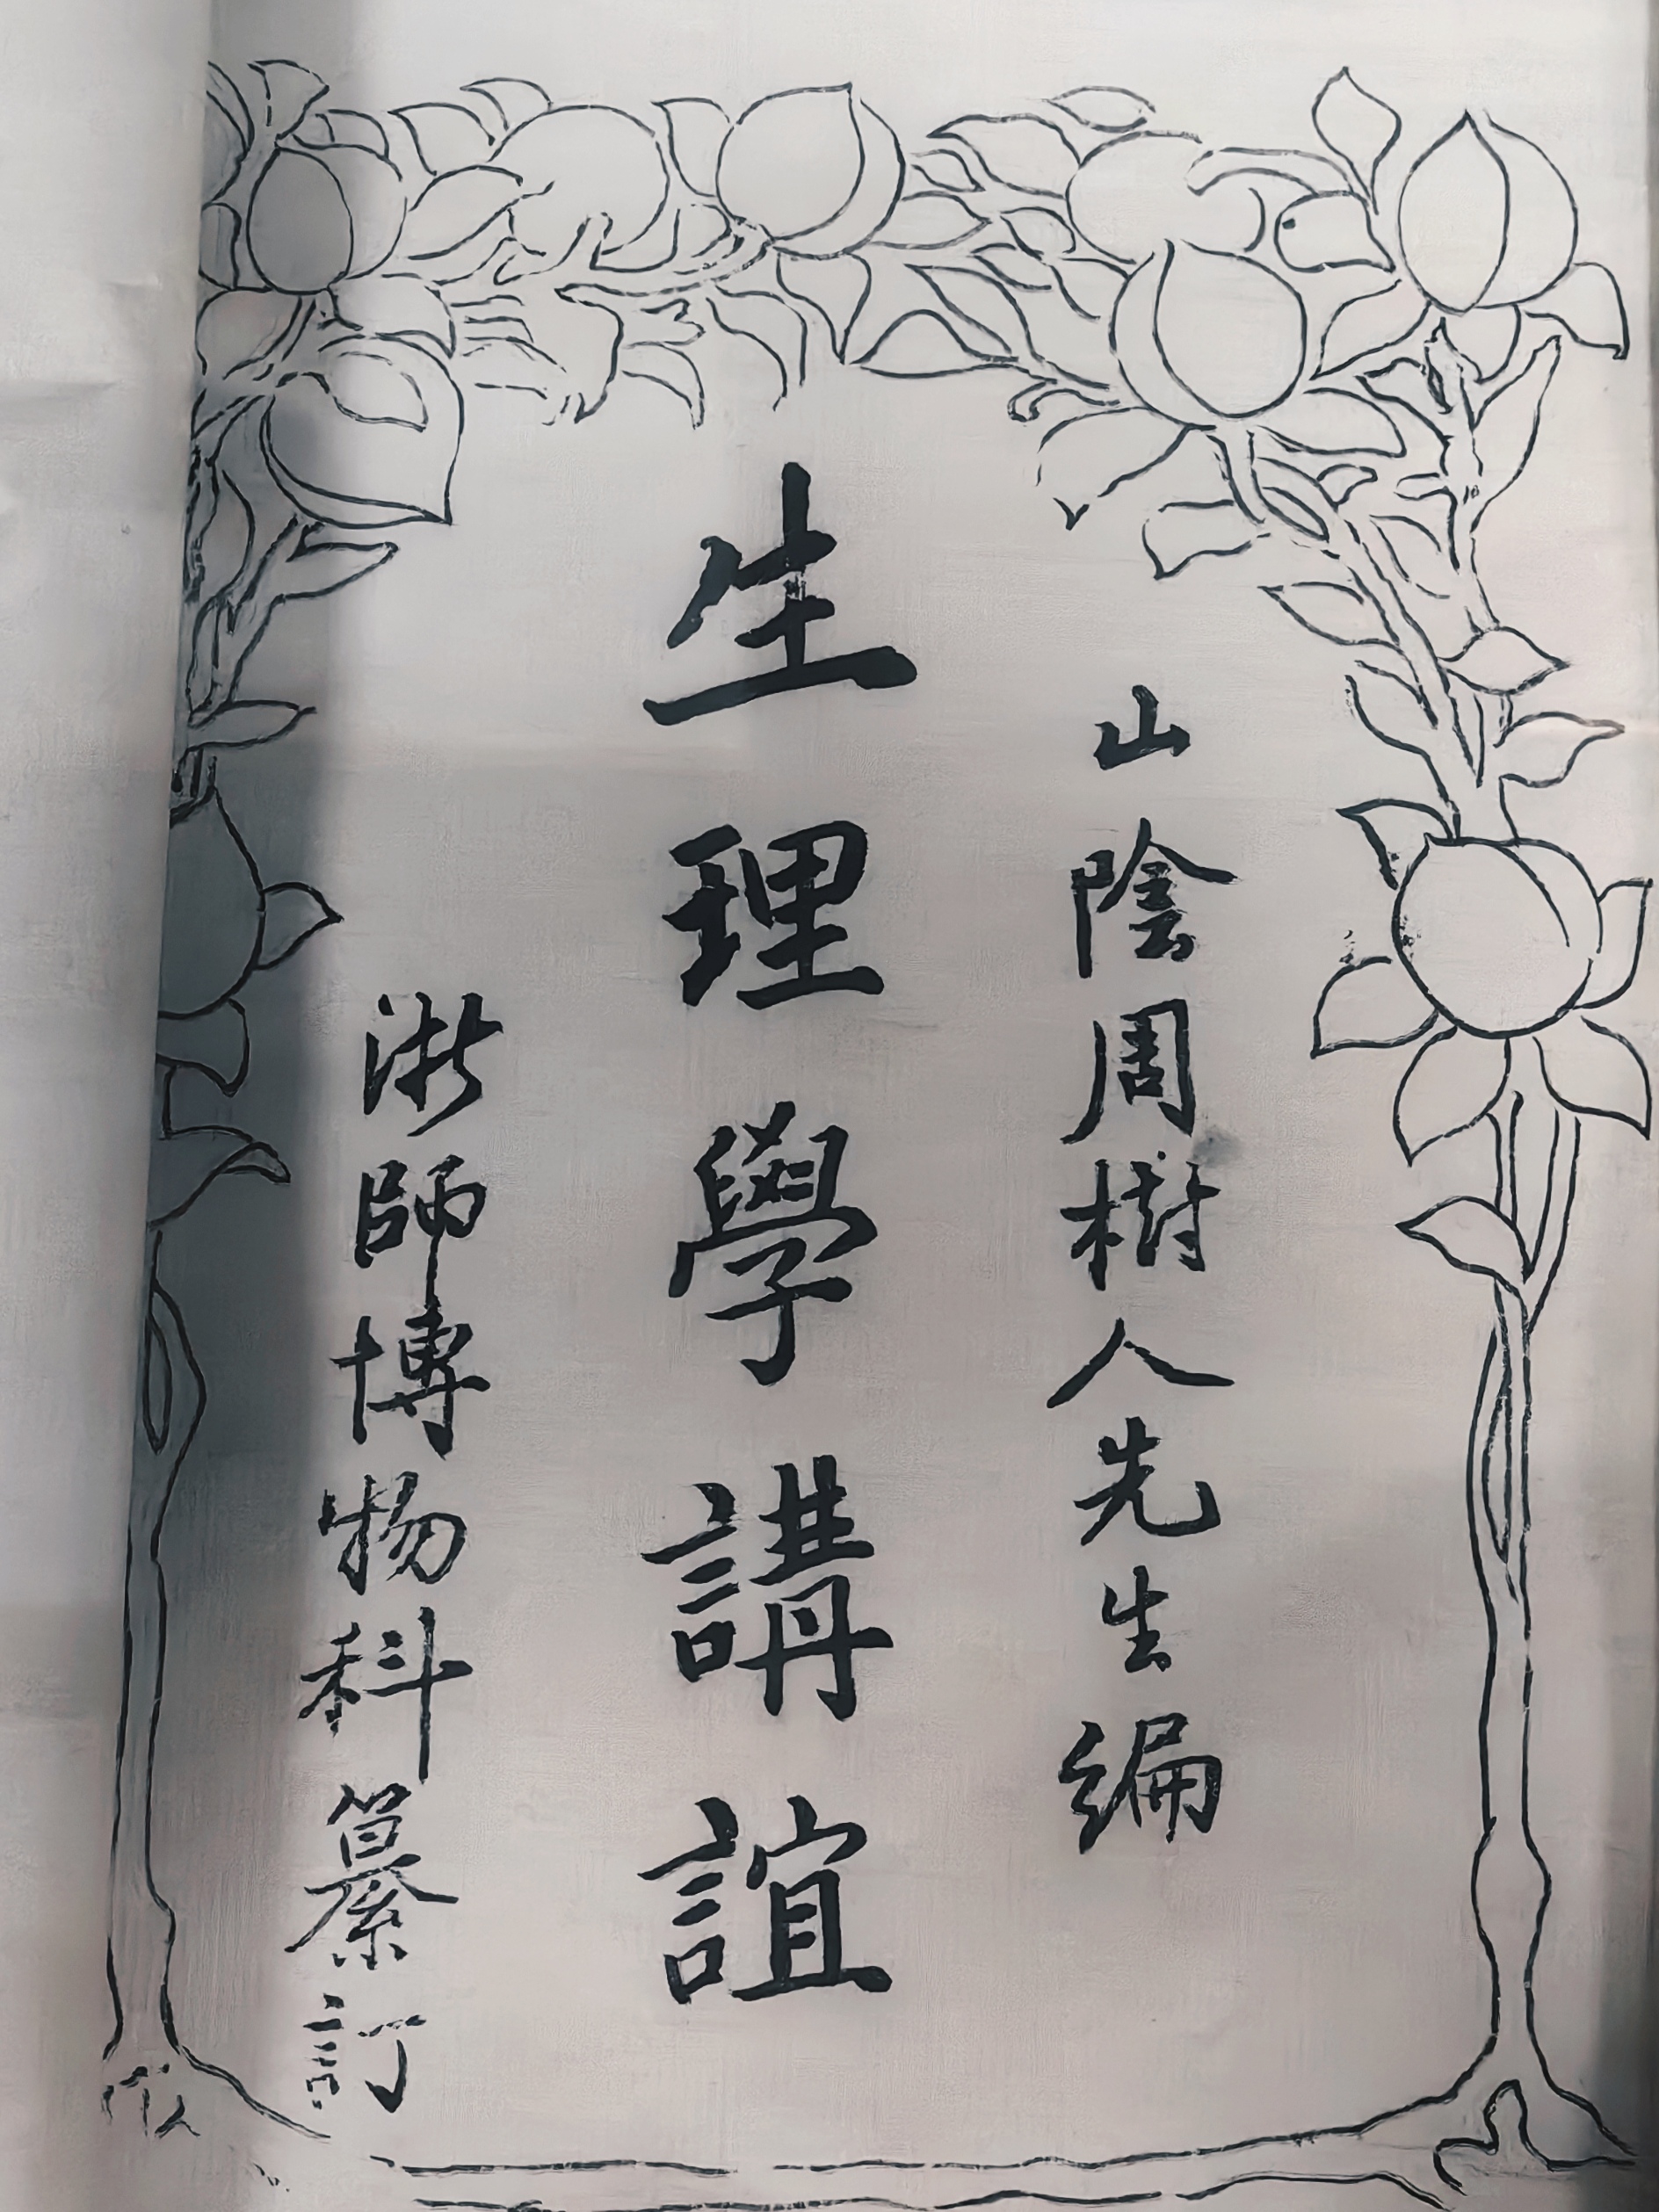 山陰周樹人先生編
生理學講誼
浙師博物科纂訂